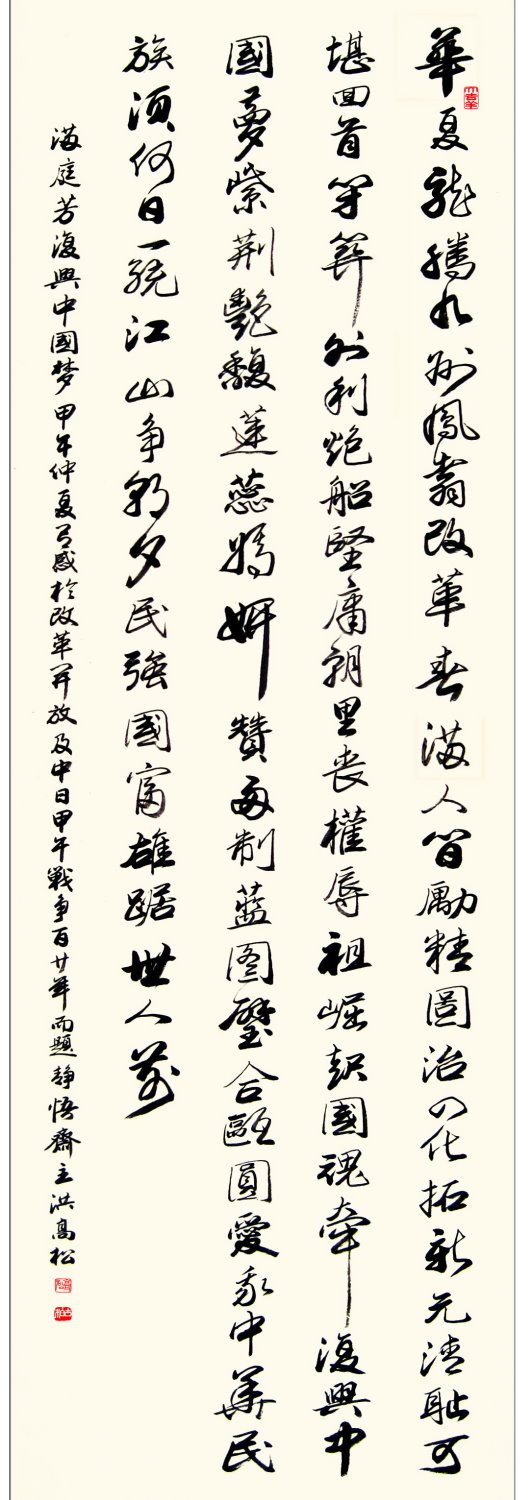 華夏龍騰九州鳳翥改革春滿人間勵精圖治四化拓新元清恥可
堪回首外利炮船堅庸朝里喪權辱祖崛起國魂牽復興中
國夢紫荊艷馥蓮蕊嫣妍贊兩制藍图璧合甌圓愛我中華民
族須何日一統江山争朝夕民強國富雄踞世人前
滿庭芳復興中國梦甲午仲夏有感於改革开放及中日甲午戰争百廿年而題靜悟齋主洪高松